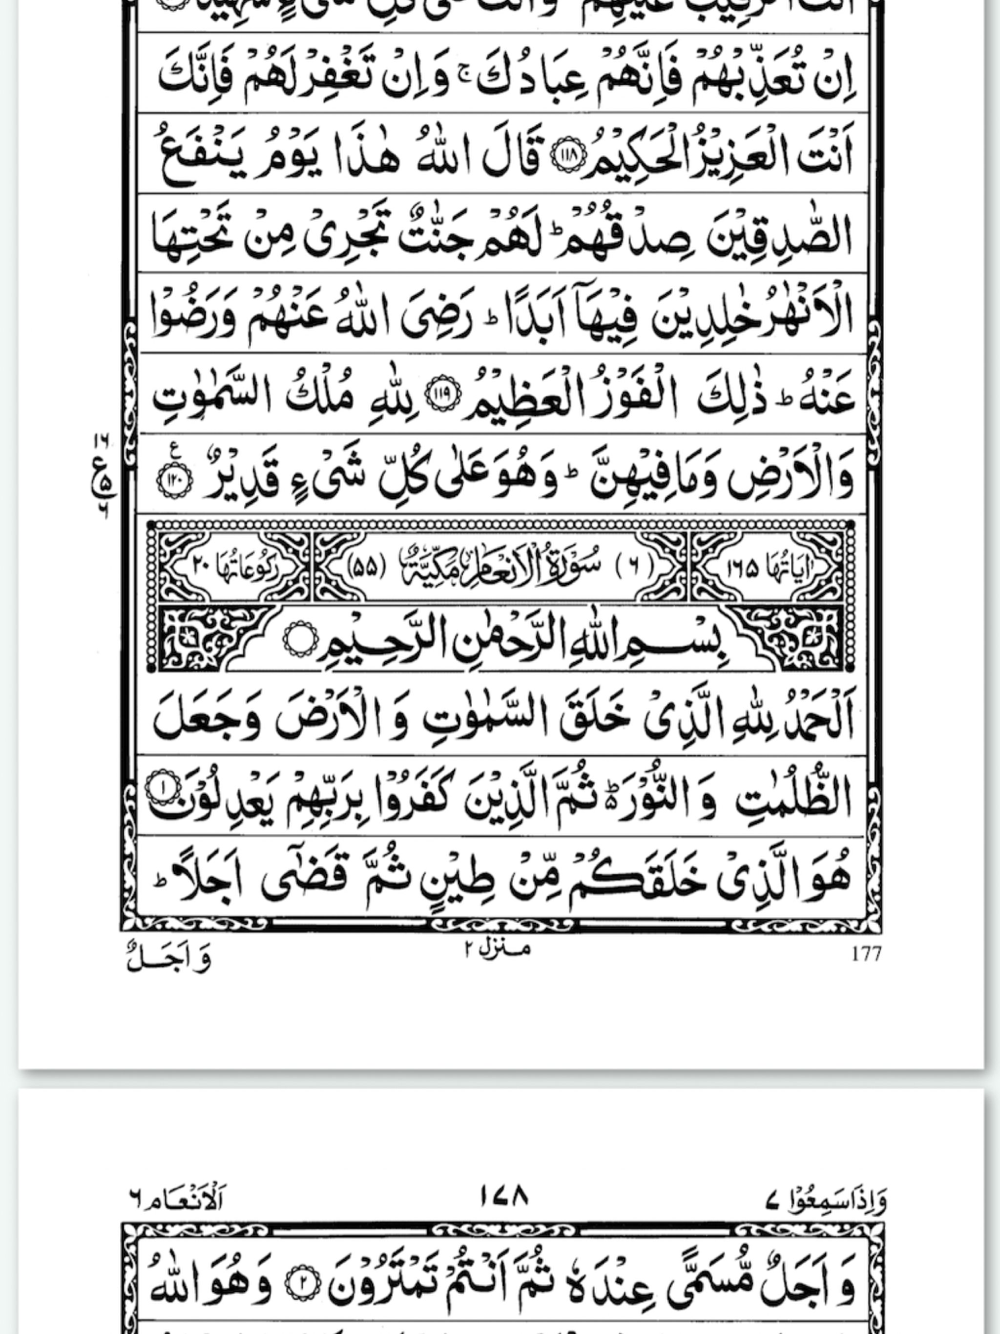 اِنْ تُعَذِّبْهُمْ فَاِنَّهُمْ عِبَادُكَ ۚ وَاِنْ تَغْفِرْ لَهُمْ فَاِنَّكَ
اَنْتَ الْعَزِيْزُ الْحَكِيْمُ ۝۱۱۸ قَالَ اللّٰهُ هٰذَا يَوْمُ يَنْفَعُ
الصّٰدِقِيْنَ صِدْقُهُمْ ؕ لَهُمْ جَنّٰتٌ تَجْرِىْ مِنْ تَحْتِهَا
الْاَنْهٰرُ خٰلِدِيْنَ فِيْهَاۤ اَبَدًا ؕ رَضِىَ اللّٰهُ عَنْهُمْ وَرَضُوْا
عَنْهُ ؕ ذٰلِكَ الْفَوْزُ الْعَظِيْمُ ۝۱۱۹ لِلّٰهِ مُلْكُ السَّمٰوٰتِ
وَالْاَرْضِ وَمَا فِيْهِنَّ ؕ وَهُوَ عَلٰى كُلِّ شَىْءٍ قَدِيْرٌ ۝۱۲۰ ع
۱۶
ع ۵
۶
اٰيَاتُهَا ۱۶۵ (۶) سُوْرَةُ الْاَنْعَامِ مَكِّيَّةٌ (۵۵) رُكُوْعَاتُهَا ۲۰
بِسْمِ اللّٰهِ الرَّحْمٰنِ الرَّحِيْمِ ۝
اَلْحَمْدُ لِلّٰهِ الَّذِىْ خَلَقَ السَّمٰوٰتِ وَ الْاَرْضَ وَجَعَلَ
الظُّلُمٰتِ وَ النُّوْرَ ۬ؕ ثُمَّ الَّذِيْنَ كَفَرُوْا بِرَبِّهِمْ يَعْدِلُوْنَ ۝۱
هُوَ الَّذِىْ خَلَقَكُمْ مِّنْ طِيْنٍ ثُمَّ قَضٰۤى اَجَلًا ؕ
177 منزل ۲ وَ اَجَلٌ
وَاِذَا سَمِعُوْا ۷ ۱۷۸ اَلْاَنْعَام ۶
وَ اَجَلٌ مُّسَمًّى عِنْدَهٗ ثُمَّ اَنْتُمْ تَمْتَرُوْنَ ۝۲ وَهُوَ اللّٰهُ